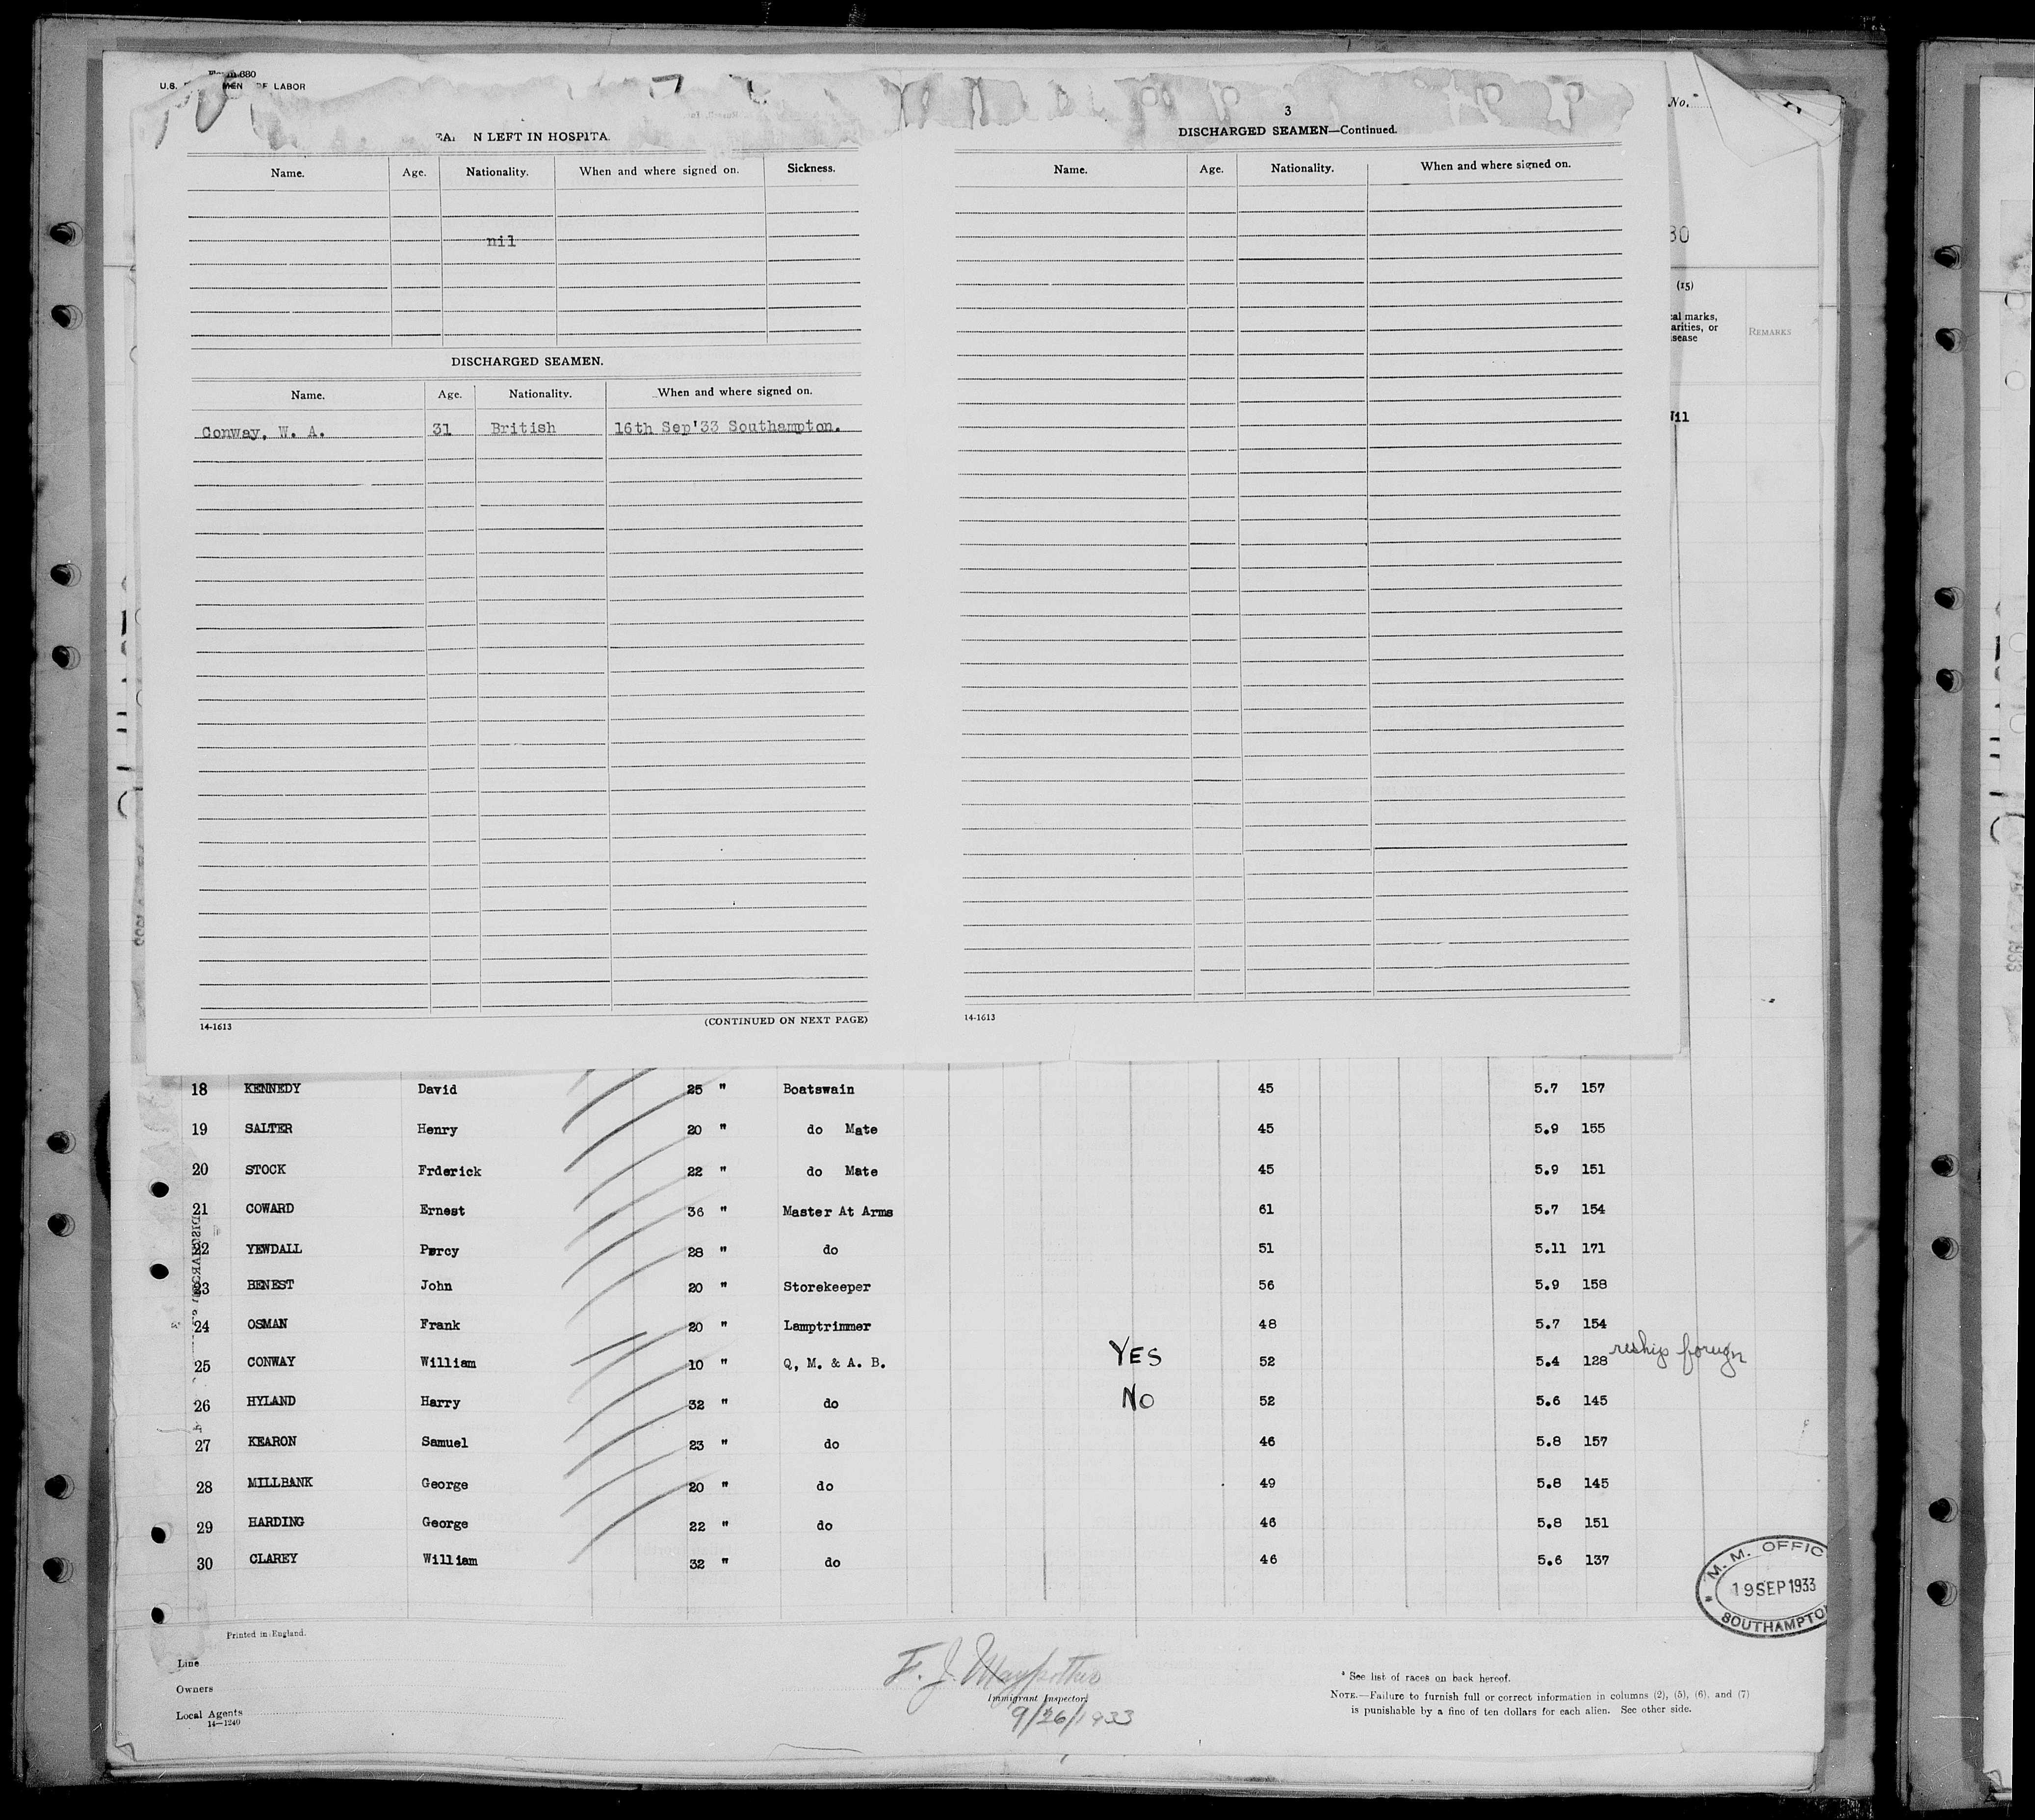 Form 680
U.S. OF LABOR
N LEFT IN HOSPITA
Name. Age. Nationality. When and where signed on. Sickness.
nil
DISCHARGED SEAMEN.
Name. Age. Nationality. When and where signed on.
Conway, W. A. 31 British 16th Sep'33 Southampton.
14-1613 (CONTINUED ON NEXT PAGE)
3
DISCHARGED SEAMEN—Continued.
Name. Age. Nationality. When and where signed on.
14-1613
No.
30
(15)
cal marks,
arities, or
isease
REMARKS
Nil
18 KENNEDY David 25 " Boatswain 45 5.7 157
19 SALTER Henry 20 " do Mate 45 5.9 155
20 STOCK Frderick 22 " do Mate 45 5.9 151
21 COWARD Ernest 36 " Master At Arms 61 5.7 154
22 YEWDALL Percy 28 " do 51 5.11 171
23 BENEST John 20 " Storekeeper 56 5.9 158
24 OSMAN Frank 20 " Lamptrimmer 48 5.7 154
25 CONWAY William 10 " Q, M. & A. B. YES 52 5.4 128 reship foreign
26 HYLAND Harry 32 " do NO 52 5.6 145
27 KEARON Samuel 23 " do 46 5.8 157
28 MILLBANK George 20 " do 49 5.8 145
29 HARDING George 22 " do 46 5.8 151
30 CLAREY William 32 " do 46 5.6 137
M. M. OFFIC
19 SEP 1933
SOUTHAMPTO
Printed in England.
Line
Owners
Local Agents
14—1240
F. J.
Immigrant Inspector.
9/26/1933
* See list of races on back hereof.
NOTE.—Failure to furnish full or correct information in columns (2), (5), (6), and (7)
is punishable by a fine of ten dollars for each alien. See other side.